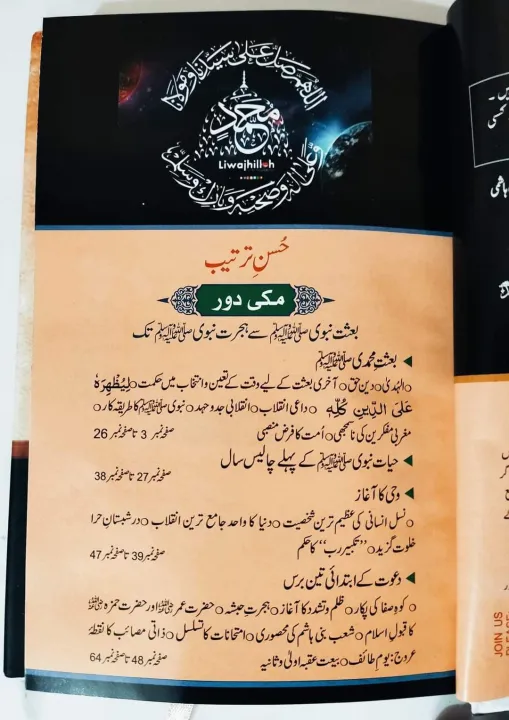 اللهم صل على سيدنا ومولانا
محمد
Liwajhillah
وعلى آله وصحبه وبارك وسلم
حُسنِ ترتیب
مکی دور
بعثت نبوی ﷺ سے ہجرت نبوی ﷺ تک
◄ بعثتِ محمدی ﷺ
○ الہدیٰ ○ دینِ حق ○ آخری بعثت کے لیے وقت کے تعین و انتخاب میں حکمت ○ لِيُظْهِرَهٗ
عَلَی الدِّیْنِ کُلِّهٖ ○ داعی انقلاب ○ انقلابی جدوجہد ○ نبوی ﷺ کا طریقہ کار ○
مغربی مفکرین کی نا سمجھی ○ اُمت کا فرض منصبی
صفحہ نمبر 3 تا صفحہ نمبر 26
◄ حیات نبوی ﷺ کے پہلے چالیس سال
صفحہ نمبر 27 تا صفحہ نمبر 38
◄ وحی کا آغاز
○ نسل انسانی کی عظیم ترین شخصیت ○ دنیا کا واحد جامع ترین انقلاب ○ در شبستانِ حرا
خلوت گزید ○ "تکبیر رب" کا حکم
صفحہ نمبر 39 تا صفحہ نمبر 47
◄ دعوت کے ابتدائی تین برس
○ کوہِ صفا کی پکار ○ ظلم و تشدد کا آغاز ○ ہجرتِ حبشہ ○ حضرت عمر ؓ اور حضرت حمزہ ؓ
کا قبولِ اسلام ○ شعب بنی ہاشم کی محصوری ○ امتحانات کا تسلسل ○ ذاتی مصائب کا نقطۂ
عروج: یومِ طائف ○ بیعت عقبہ اولیٰ و ثانیہ
صفحہ نمبر 48 تا صفحہ نمبر 64
JOIN US